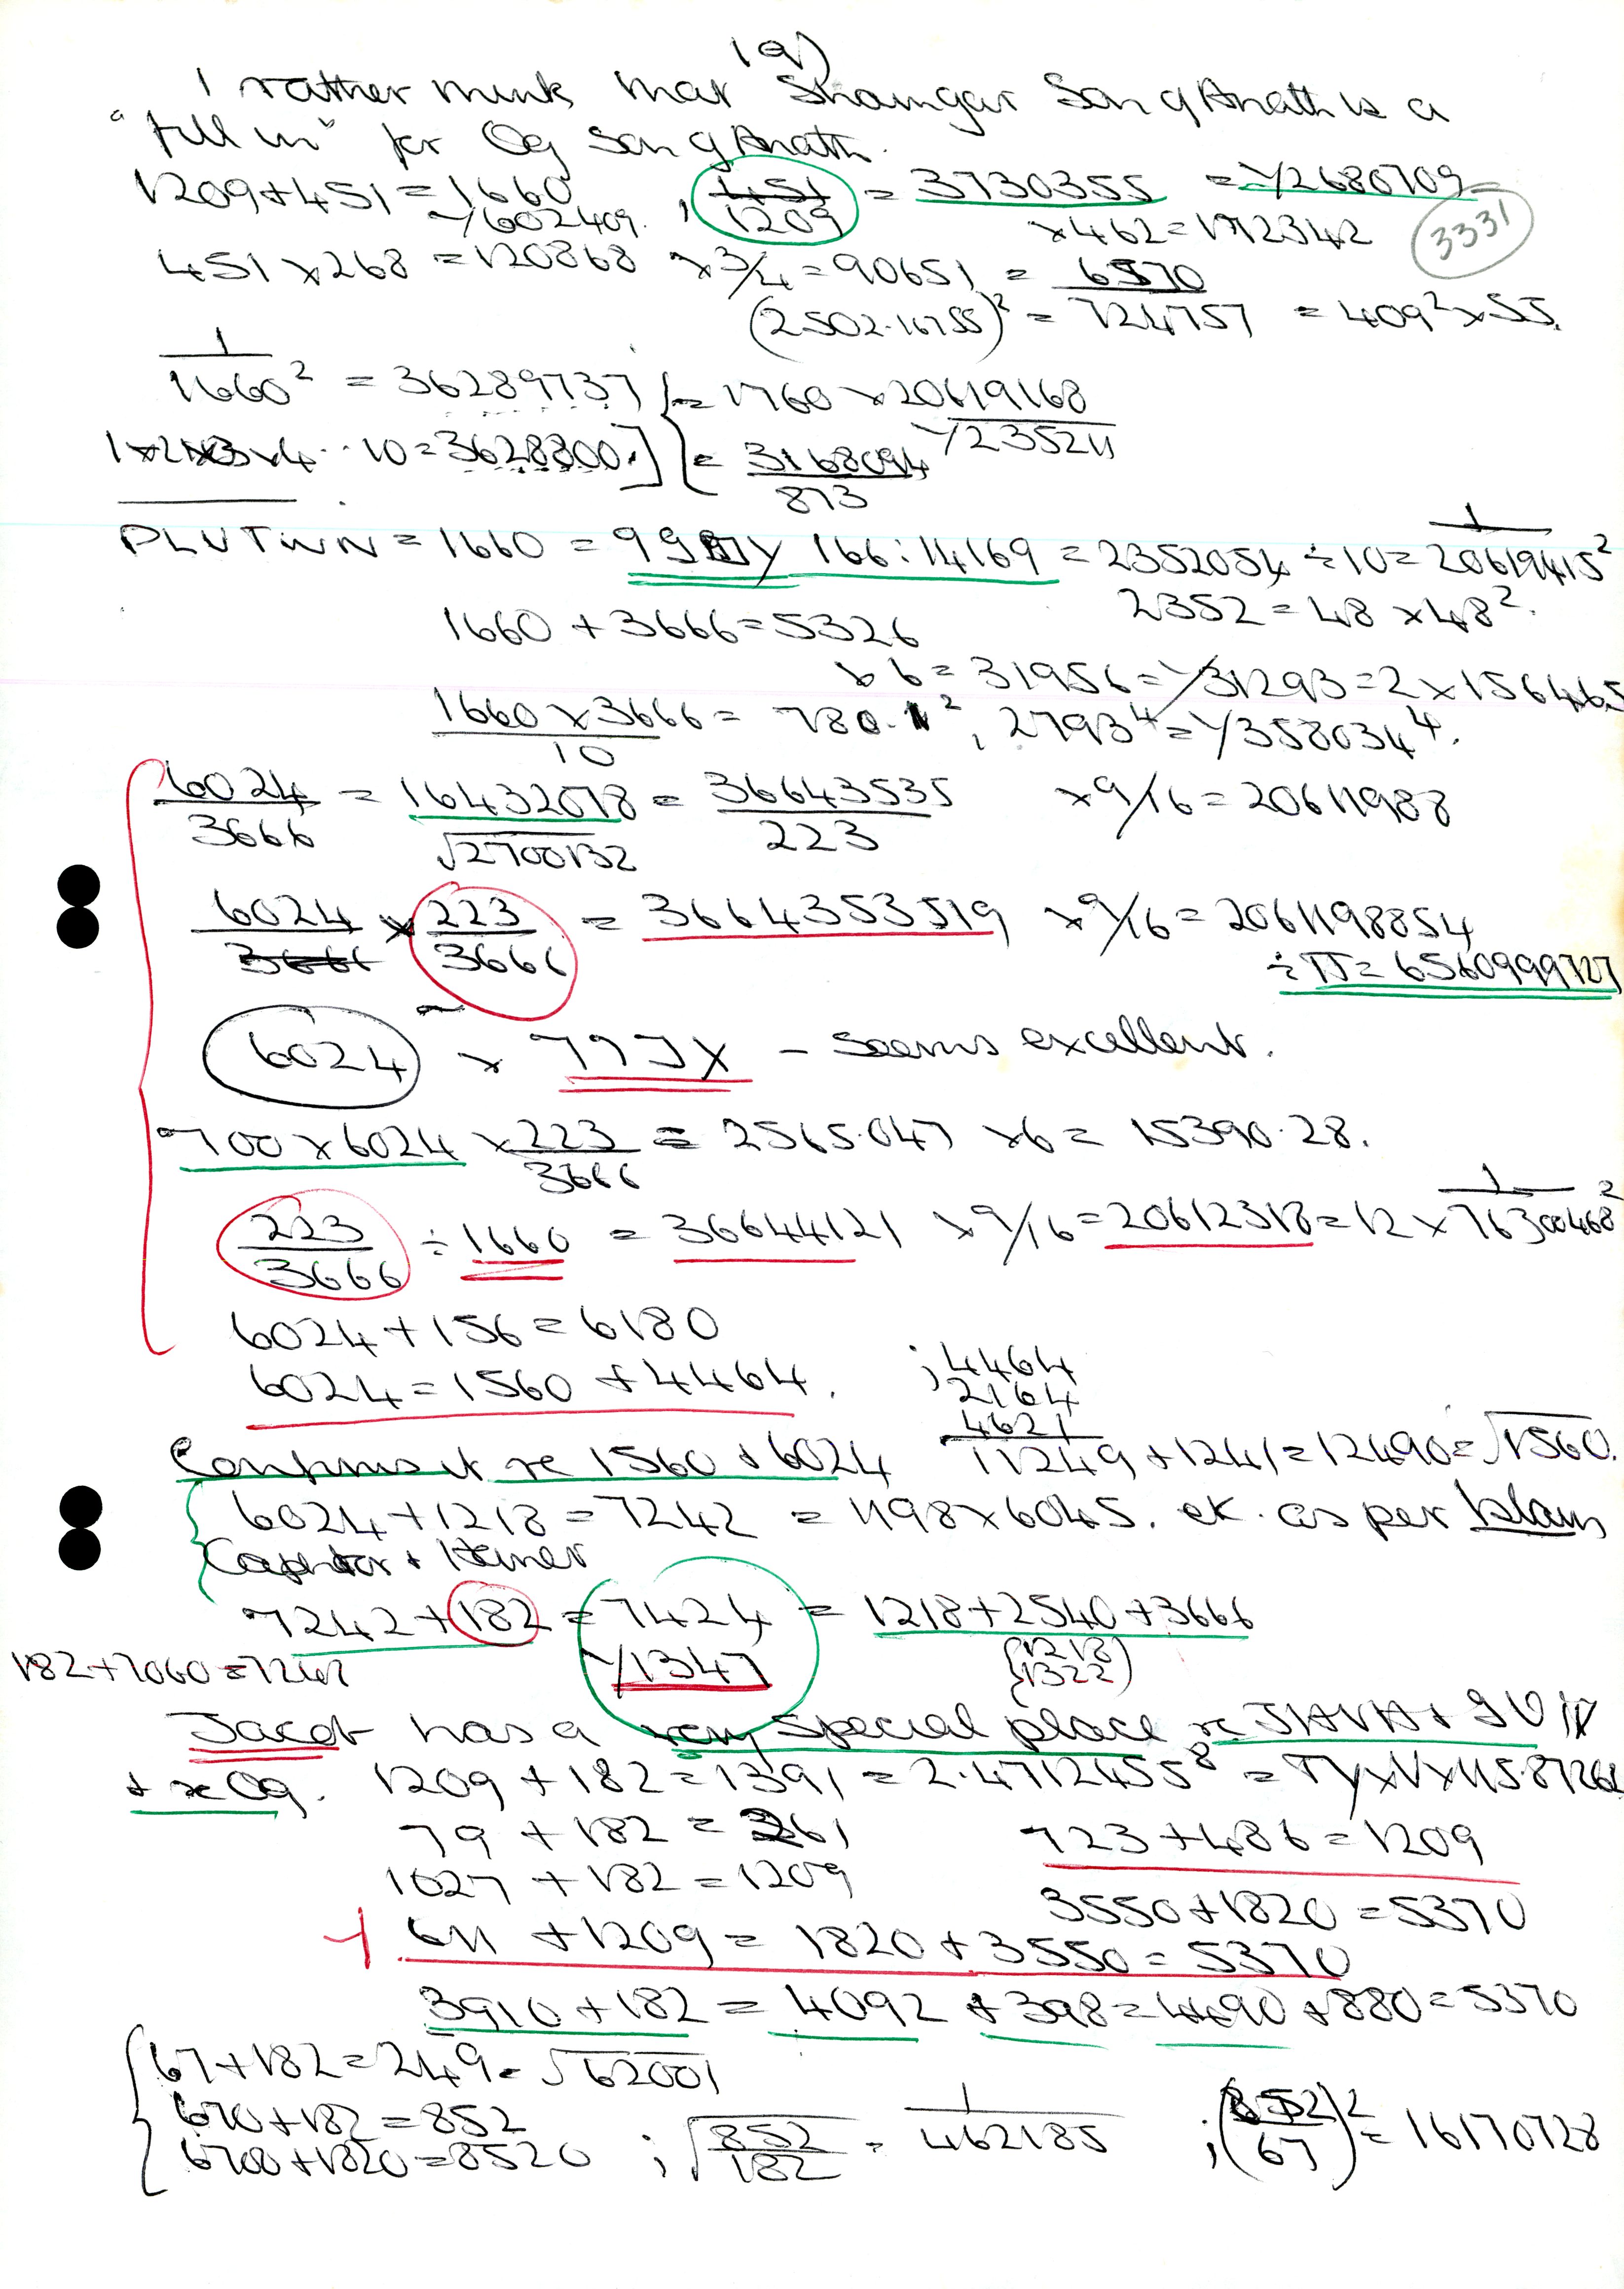 19)
I rather think that Shamgar Son of Anath is a
"fill in" for Og Son of Anath.
1209 + 451 = 1660 , 451/1209 = 3730355 = 1/2680709
1/602409. × 462 = 1712342 3331
451 × 268 = 120868 × 3/4 = 90651 = 6570
(2502.16755)² = 724757 = 409² × 55.
1/1660² = 36289737 = 1760 × 20619168
1×2×3×4 .. 10 = 3628800.] = 3168094/873 1/235211
PLUTWN = 1660 = 166:14169 = 2352054 ÷ 10 = 1/20619415²
1660 + 3666 = 5326 2352 = 48 × 48².
× 6 = 31956 = 1/31293 = 2 × 156465
1660 × 3666/10 = 780.1², 2793⁴ = 1/358034⁴.
6024/3666 = 16432078 = 36643535/223 × 9/16 = 20611988
√2700132
6024/3666 × 223/3666 = 3664353519 × 9/16 = 2061198854
÷ π = 6560999727
6024 × - seems excellent.
700 × 6024 × 223/3666 = 2565.047 × 6 = 15390.28.
223/3666 ÷ 1660 = 36644121 × 9/16 = 20612318 = 12 × 1/76300468²
6024 + 156 = 6180
6024 = 1560 + 4464. ; 4464
2164
4621
Confirms it re 1560 + 6024 11249 + 1241 = 12490 = √1560.
6024 + 1218 = 7242 = 1198 × 6045. etc. as per Islam
Caphtor + Homer
7242 + 182 = 7424 = 1218 + 2540 + 3666
182 + 7060 = 7242 1/1347 (1218
1322)
Jacob has a very special place re
+ re Og. 1209 + 182 = 1391 = 2.4712455⁸
79 + 182 = 261 723 + 486 = 1209
1027 + 182 = 1209
3550 + 1820 = 5370
611 + 1209 = 1820 + 3550 = 5370
3910 + 182 = 4092 + 398 = 4490 + 880 = 5370
67 + 182 = 249 = √62001
670 + 182 = 852
6700 + 1820 = 8520 ; √852/182 = 1/462185 ; (852/67)² = 16170728